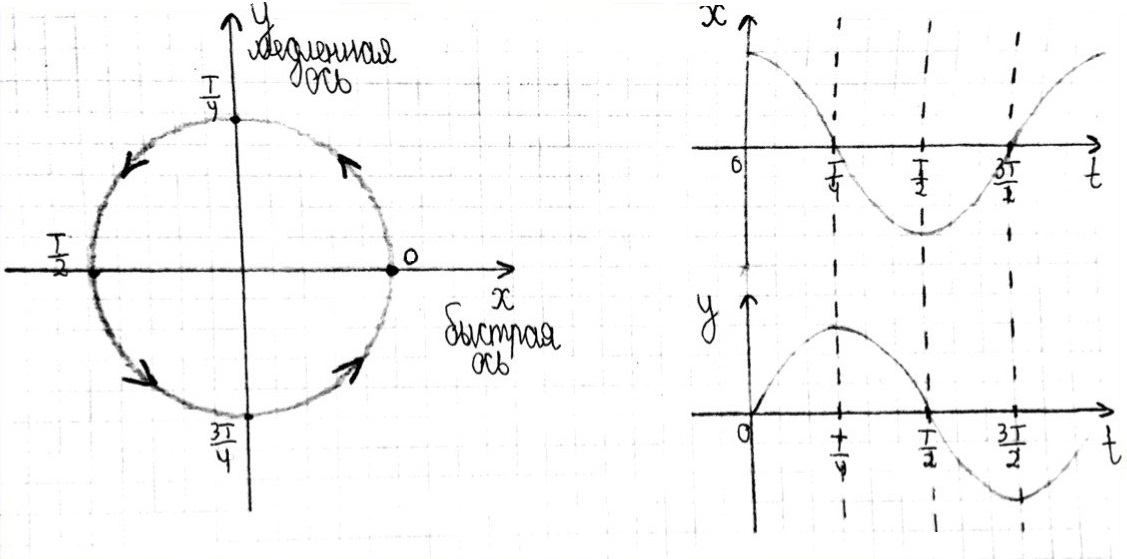 y
медленная
ось
T/4
T/2
0
x
быстрая
ось
3T/4
x
0
T/4
T/2
3T/2
t
y
0
T/4
T/2
3T/2
t